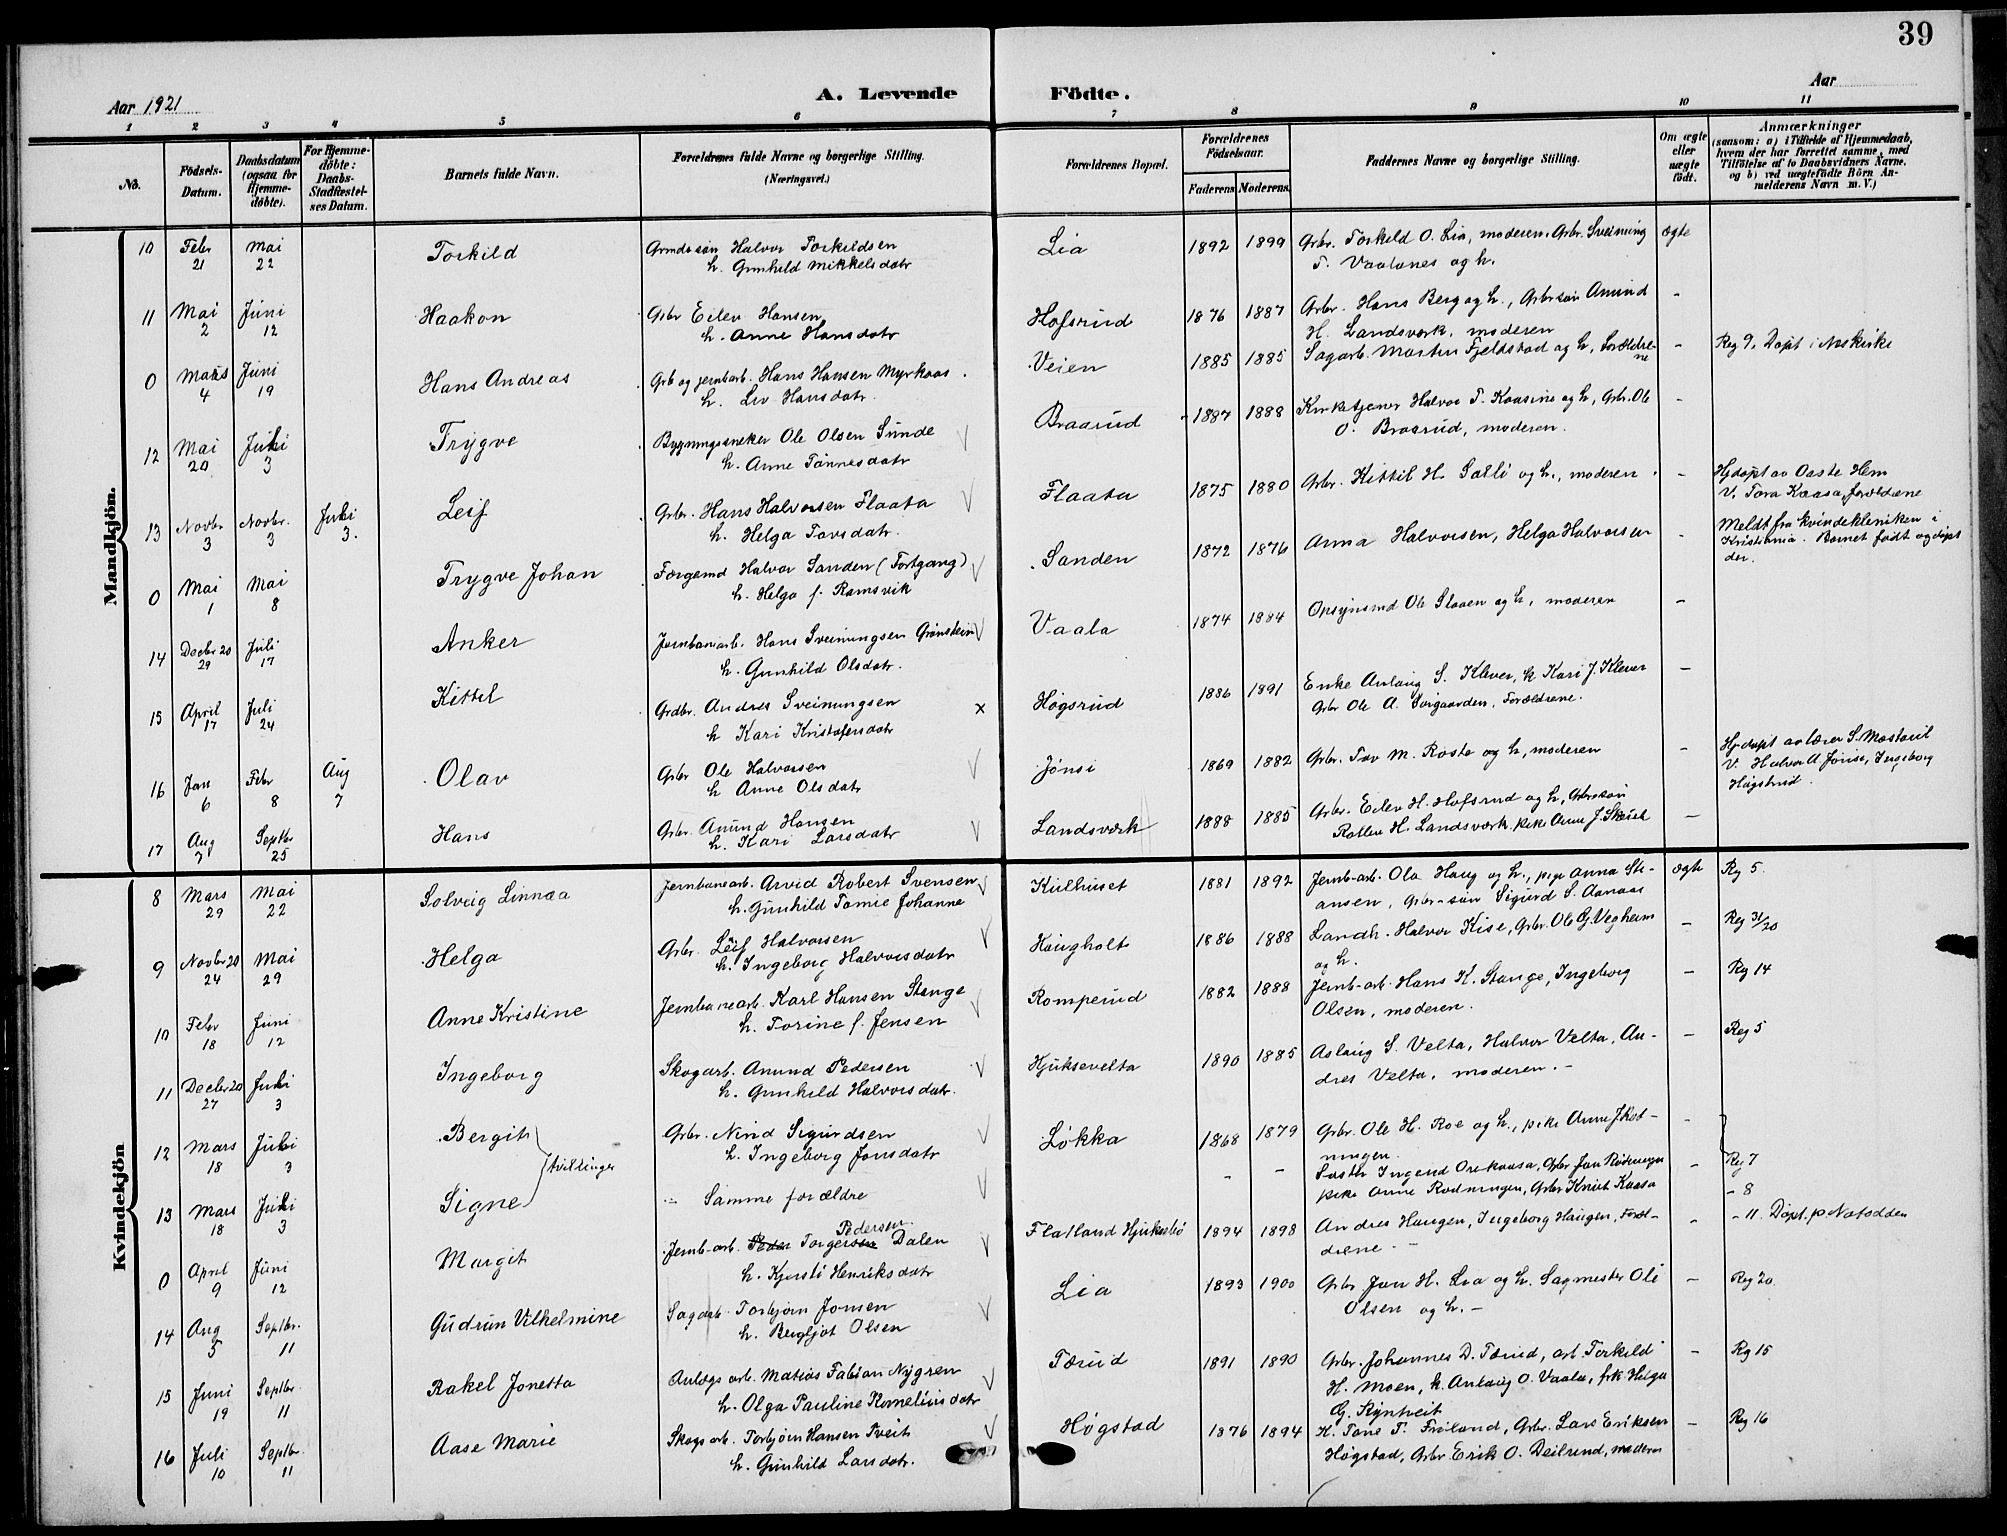 39
Aar 1921
A. Levende Födte.
Aar
1 2 3 4 5 6 7 8 9 10 11
No.
Födsels-Datum.
Daabsdatum (ogsaa for Hjemmedöbte).
For Hjemmedöbte: Daabs-Stadfæstelses Datum.
Barnets fulde Navn.
Forældrenes fulde Navne og borgerlige Stilling.
(Næringsvei.)
Forældrenes Bopæl.
Forældrenes Födselsaar.
Faderens Moderens.
Faddernes Navne og borgerlige Stilling.
Om ægte eller uægte födt.
Anmærkninger
(saasom: a) i Tilfælde af Hjemmedaab, hvem der har forrettet samme, med Tilföielse af to Daabsvidners Navne, og b) ved uægtefödte Börn Anmelderens Navn m. V.)
Mandkjön.
10 Febr 21 Mai 22 Torkild Grmdssøn Halvor Torkildsen
h. Gunhild Mikkelsdatr
Lia 1892 1899 Grbr. Torkild O. Lia, moderen, Grbr. Sveinung
T. Vaalanes og h. ægte
11 Mai 2 Juni 12 Haakon Grbr Eilev Hansen
h. Anne Hansdatr
Hofsrud 1876 1887 Grbr. Hans Berg og h., Grbrsøn Anund
H. Landsverk, moderen -
0 Mars 4 Juni 19 Hans Andreas Grb og jernbarb. Hans Hansen Myrkaas
h. Liv Hansdatr.
Veien 1885 1885 Sagarb. Martin Fjeldstad og h, Forældrene - Reg 9. Døpt i Neskirke
12 Mai 20 Juli 3 Trygve Bygningssneker Ole Olsen Sunde
h. Anne Tønnesdatr
Braarud 1887 1888 Kirketjener Halvor T. Kaasine og h, Grbr. Ole
O. Braarud, moderen. -
13 Novbr 3 Novbr. 3 Juli 3. Leif Grbr. Hans Halvorsen Flaata
h. Helga Tovsdatr.
Flaata 1875 1880 Grbr. Kittil H. og h., moderen - Hjdøpt av Aaste Hem
V. Tora Kaasa, forældrene
0 Mai 1 Mai 8 Trygve Johan Færgemd Halvor Sanden (Fortgang)
h. Helga f. Ramsvik
Sanden 1872 1876 Anna Halvorsen, Helga Halvorsen - Meldt fra kvindekliniken i
Kristiania. Barnet født og døpt
der.
14 Decbr 20 29 Juli 17 Anker Jernbanearb. Hans Sveinungsen Grønstein
h. Gunhild Olsdatr.
Vaala 1874 1884 Opsynsmd Ole Slaaen og h, moderen -
15 April 17 Juli 24 Kittil Grdbr. Andres Sveinungsen
h Kari Kristofersdatr x
Høgsrud 1886 1891 Enke Anlaug S. Klever, k Kari J. Klever
Grbr Ole A. Sørgaarden, Forældrene. -
16 Jan 6 Febr 8 Aug 7 Olav Grbr Ole Halvorsen
h Anne Olsdatr
Jønsi 1869 1882 Grbr. Tov M. Roste og h, moderen - Hjdøpt av lærer S. Mostøvl
V. Halvor A Jønsi, Ingeborg
Høgstrud.
17 Aug 7 Septbr 25 Hans Grbr. Anund Hansen
h. Kari Larsdatr
Landsverk 1888 1885 Grbr. Eilev H. Hofsrud og h, Grbrsøn
H. Landsverk, pike Anne J. -
Kvindekjön
8 Mars 29 Mai 22 Solveig Linnea Jernbanearb. Arvid Robert Svensen
h. Gunhild Tomie Johanne
Kulhuset 1881 1892 Jernb-arb. Ola Haug og h., pige Anna Sti-
ansen, Grbr-søn Sigurd S. Aanaas ægte Rg 5.
9 Novbr 20 24 Mai 29 Helga Grbr. Leif Halvorsen
h. Ingeborg Halvorsdatr
Haugholt 1886 1888 Landh. Halvor Kise, Grbr. Ole G. Vegheim
og h. - Reg 31/20
10 Febr 18 Juni 12 Anne Kristine Jernbanearb. Karl Hansen Stenge
h. Torine f. Jensen
Romperud 1882 1888 Jernb-arb. Hans K. Stange, Ingeborg
Olsen, moderen. - Rg 14
11 Decbr 20 27 Juli 3 Ingeborg Skogarb. Anund Pedersen
h. Gunhild Halvorsdatr.
Hjuksevelta 1890 1885 Aslaug S. Velta, Halvor Velta, An-
dres Velta, moderen. - - Reg 5
12 Mars 18 Juli 3 Bergit Grbr. Nirid Sigurdsen
h. Ingeborg Jonsdatr
Løkka 1868 1879 Grbr. Ole H. Roe og h., pike Anne J. Rød-
ningen. - Rg 7
tvillinger
13 Mars 18 Juli 3 Signe Samme forældre
- - Grbr Jon Rødningen
pike Anne Rødningen, Grbr Knut Kaasa - - 8
0 April 9 Juni 12 Margit Jernb-arb. Peder Torgersen Pedersen Dalen
h. Kjersti Henriksdatr
Flatland Hjuksebø 1894 1898 Andres Haugen, Ingeborg Haugen, Foræl-
drene - - - 11. Døpt. p Notodden
14 Aug 5 Septbr. 11 Gudrun Vilhelmine Sagarb. Torbjørn Jonsen
h. Bergljot Olsen
Lia 1893 1900 Grbr Jon H. Lia og h. Sagmester Ole
Olsen og h. - - Reg 20.
15 Juni 19 Septbr. 11 Rakel Jonetta Anlægs arb. Matias Fabian Nygren
h. Olga Pauline Korneliusdatr
Tærud 1891 1890 Grbr. Johannes D. Tærud, arb. Torkild
H. Moen, k. Anlaug O. Vaala, frk Helga
G. - Rg 15
16 Juli 10 Septbr. 11 Aase Marie Skogsarb. Torbjørn Hansen Tveit
h. Gunhild Larsdatr.
Høgstad 1876 1894 K. Tone T. Friland, Grbr. Lars Eriksen
Høgstad, Grbr Erik O. Deilrind, moderen - Rg 16